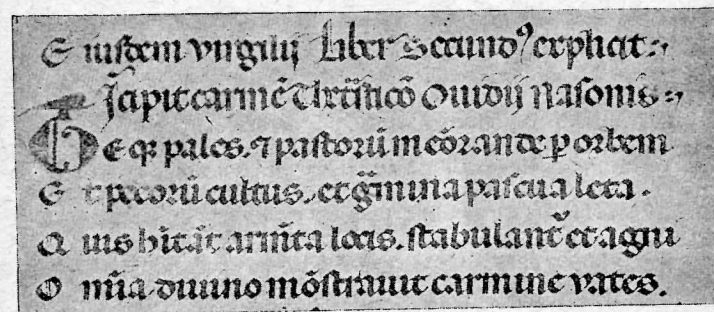 E iusdem virgilij Liber Secund⁹ explicit:~
Īcipit carmē Thetrāsticō Ouidij Nasonis:~
T eqꝫ pales. ⁊ pastorū meōrande ꝑ orbem
E t pecorū cultus. et gͣmina pascua leta.
Q uis hītāt armēta locis. stabulant᷑ et agni
O mīa diuino mōstrauit carmine vates.